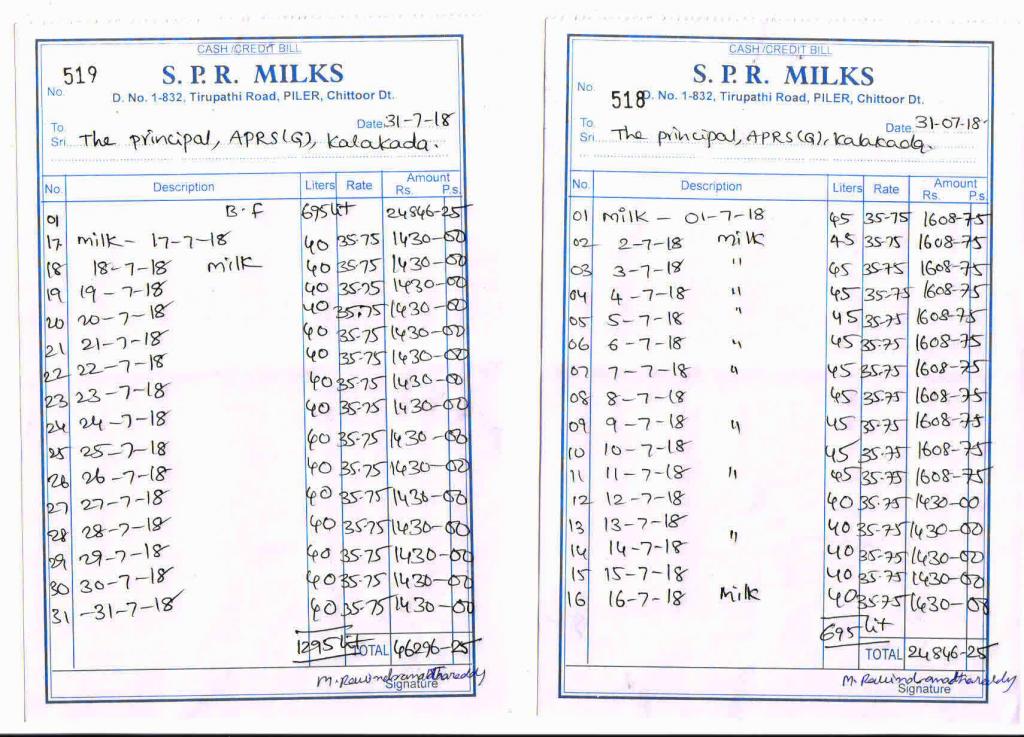 CASH/CREDIT BILL
519
S. P. R. MILKS
No.
D. No. 1-832, Tirupathi Road, PILER, Chittoor Dt.
To. Date 31-7-18
Sri The principal, APRS(G), Kalakada.
No. Description Liters Rate Amount Rs. P.s.
01 B.F 695 lit 24846-25
17 milk - 17-7-18 40 35-75 1430-00
18 18-7-18 milk 40 35-75 1430-00
19 19-7-18 40 35-75 1430-00
20 20-7-18 40 35.75 1430-00
21 21-7-18 40 35-75 1430-00
22 22-7-18 40 35-75 1430-00
23 23-7-18 40 35-75 1430-00
24 24-7-18 40 35-75 1430-00
25 25-7-18 40 35-75 1430-00
26 26-7-18 40 35-75 1430-00
27 27-7-18 40 35-75 1430-00
28 28-7-18 40 35-75 1430-00
29 29-7-18 40 35-75 1430-00
30 30-7-18 40 35-75 1430-00
31 -31-7-18 40 35-75 1430-00
1295 lit TOTAL 46296-25
Signature
CASH/CREDIT BILL
S. P. R. MILKS
No. 518
D. No. 1-832, Tirupathi Road, PILER, Chittoor Dt.
To. Date 31-07-18
Sri The principal, APRS(G), Kalakada.
No. Description Liters Rate Amount Rs. P.s.
01 milk - 01-7-18 45 35-75 1608-75
02 2-7-18 milk 45 35-75 1608-75
03 3-7-18 " 45 35-75 1608-75
04 4-7-18 " 45 35-75 1608-75
05 5-7-18 " 45 35-75 1608-75
06 6-7-18 " 45 35-75 1608-75
07 7-7-18 " 45 35-75 1608-75
08 8-7-18 45 35-75 1608-75
09 9-7-18 " 45 35-75 1608-75
10 10-7-18 45 35-75 1608-75
11 11-7-18 " 45 35-75 1608-75
12 12-7-18 40 35-75 1430-00
13 13-7-18 " 40 35-75 1430-00
14 14-7-18 40 35-75 1430-00
15 15-7-18 40 35-75 1430-00
16 16-7-18 milk 40 35-75 1430-00
695 lit
TOTAL 24846-25
Signature